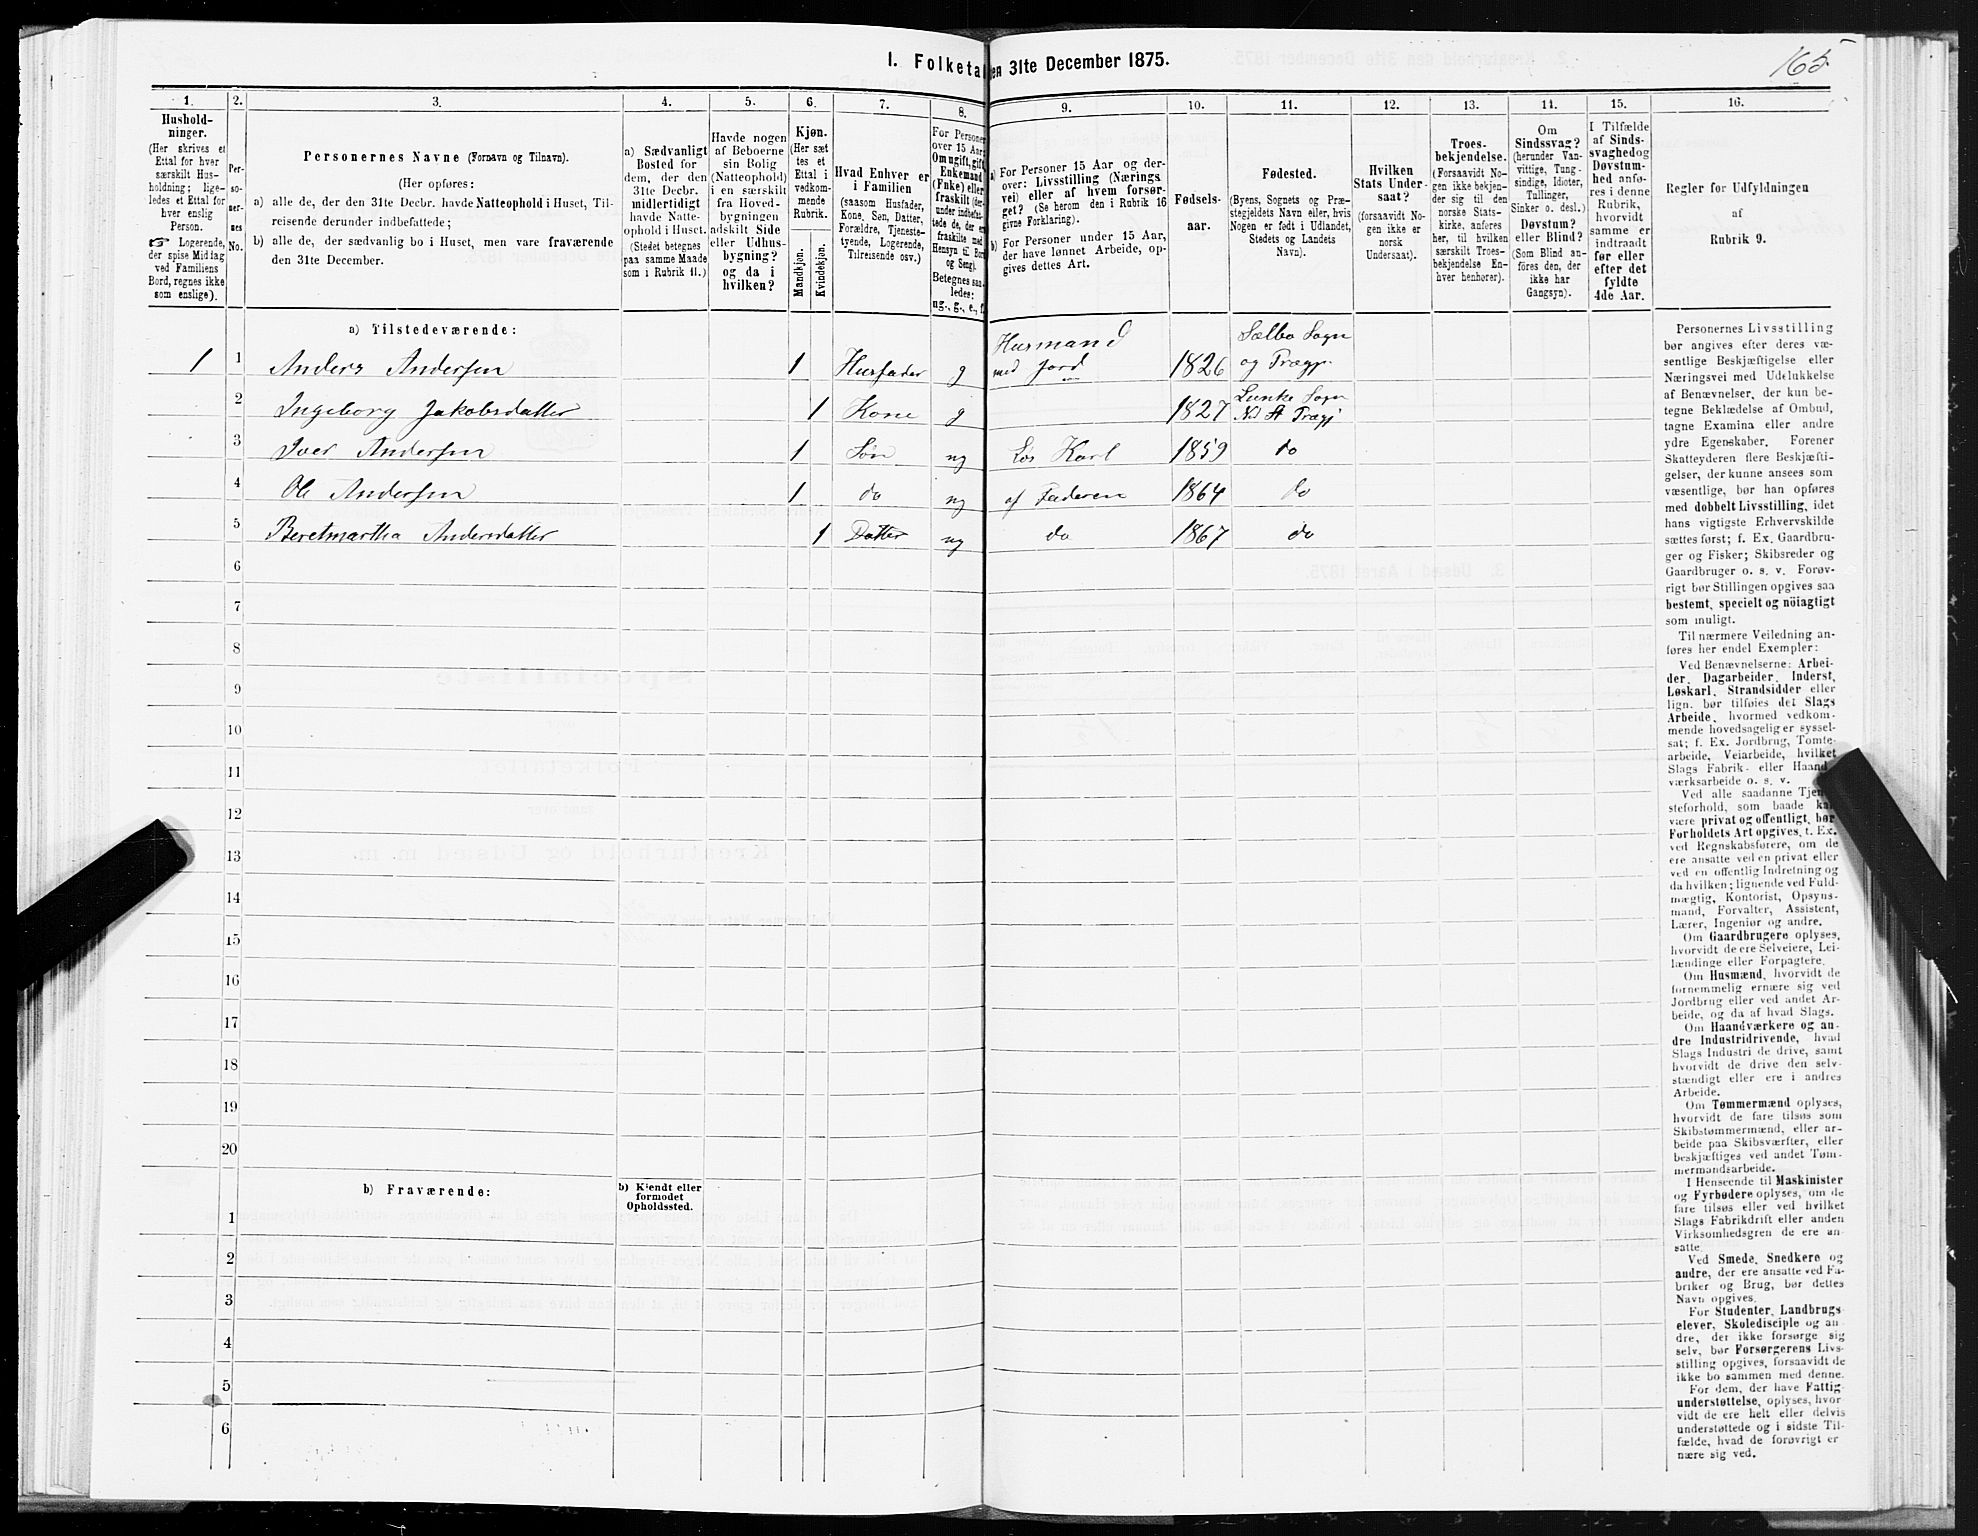 165
I. Folketal den 31te December 1875.
1. 2. 3. 4. 5. 6. 7. 8. 9. 10. 11. 12. 13. 14. 15. 16.
Hushold-
ninger.
(Her skrives et
Ettal for hver
særskilt Hus-
holdning; lige-
ledes et Ettal for
hver enslig
Person.
☞ Logerende,
der spise Middag
ved Familiens
Bord, regnes ikke
som enslige).
Per-
so-
ner-
nes
No.
Personernes Navne (Fornavn og Tilnavn).
(Her opføres:
a) alle de, der den 31te Decbr. havde Natteophold i Huset, Til-
reisende derunder indbefattede;
b) alle de, der sædvanlig bo i Huset, men vare fraværende
den 31te December.
a) Sædvanligt
Bosted for
dem, der den
31te Decbr.
midlertidigt
havde Natte-
ophold i Huset.
(Stedet betegnes
paa samme Maade
som i Rubrik 11.)
Havde nogen
af Beboerne
sin Bolig
(Natteophold)
i en særskilt
fra Hoved-
bygningen
adskilt Side
eller Udhus-
bygning?
og da i
hvilken?
Kjøn.
(Her sæt
tes et
Ettal i
vedkom-
mende
Rubrik.
Mandkjøn.
Kvindekjøn.
Hvad Enhver er
i Familien
(saasom Husfader,
Kone, Søn, Datter,
Forældre, Tjeneste-
tyende, Logerende,
Tilreisende osv.)
For Personer
over 15 Aar:
Om ugift, gift,
Enkemand
(Enke) eller
fraskilt (der-
under indbefat-
tede de, der ere
fraskilte med
Hensyn til Bord
og Seng).
Betegnes saa-
ledes:
ug., g., e., f.
a) For Personer 15 Aar og der-
over: Livsstilling (Nærings
vei) eller af hvem forsør-
get? (Se herom den i Rubrik 16
givne Forklaring).
b) For Personer under 15 Aar,
der have lønnet Arbeide, op-
gives dettes Art.
Fødsels-
aar.
Fødested.
(Byens, Sognets og Præ-
stegjeldets Navn eller, hvis
Nogen er født i Udlandet,
Stedets og Landets
Navn).
Hvilken
Stats Under-
saat?
(forsaavidt No-
gen ikke er
norsk
Undersaat).
Troes-
bekjendelse.
(Forsaavidt No-
gen ikke bekjen-
der sig til den
norske Stats-
kirke, anføres
her, til hvilken
særskilt Troes-
bekjendelse En-
hver henhører).
Om
Sindssvag?
(herunder Van-
vittige, Tung-
sindige, Idioter,
Tullinger,
Sinker o. desl.)
Døvstum?
eller Blind?
(Som Blind an-
føres den, der
ikke har
Gangsyn).
I Tilfælde
af Sinds-
svaghed og
Døvstum-
hed anfø-
res i denne
Rubrik,
hvorvidt
samme er
indtraadt
før eller
efter det
fyldte
4de Aar.
Regler for Udfyldningen
af
Rubrik 9.
a) Tilstedeværende:
1 1 Anders Andersen 1 Husfader g Husmand med Jord 1826 Sælbo Sogn og Præg.
2 Ingeborg Jakobsdatter 1 Kone g 1827 Sogn Prægj
3 Iver Andersen 1 Søn ug Løs Karl 1859 do
4 Ole Andersen 1 do ug af Faderen 1864 do
5 Beretmartha Andersdatter 1 Datter ug do 1867 do
6
7
8
9
10
11
12
13
14
15
16
17
18
19
20
b) Fraværende:
b) Kjendt eller
formodet
Opholdssted.
1
2
3
4
5
6
Personernes Livsstilling
bør angives efter deres væ-
sentlige Beskjæftigelse eller
Næringsvei med Udelukkelse
af Benævnelser, der kun be-
tegne Beklædelse af Ombud,
tagne Examina eller andre
ydre Egenskaber. Forener
Skatteyderen flere Beskjæfti-
gelser, der kunne ansees som
væsentlige, bør han opføres
med dobbelt Livsstilling, idet
hans vigtigste Erhvervskilde
sættes først; f. Ex. Gaardbru-
ger og Fisker; Skibsreder og
Gaardbruger o. s. v. Forøv-
rigt bør Stillingen opgives saa
bestemt, specielt og nöiagtigt
som muligt.
Til nærmere Veiledning an-
føres her endel Exempler:
Ved Benævnelserne: Arbei-
der, Dagarbeider, Inderst,
Løskarl, Strandsidder eller
lign. bør tilføies det Slags
Arbeide, hvormed vedkom-
mende hovedsagelig er syssel-
sat; f. Ex. Jordbrug, Tomte-
arbeide, Veiarbeide, hvilket
Slags Fabrik- eller Haand-
værksarbeide o. s. v.
Ved alle saadanne Tjene-
steforhold, som baade kan
være privat og offentligt, bør
Forholdets Art opgives, t. Ex.
ved Regnskabsførere, om de
ere ansatte ved en privat eller
ved en offentlig Indretning og
da hvilken; lignende ved Fuld-
mægtig, Kontorist, Opsyns-
mand, Forvalter, Assistent,
Lærer, Ingeniør og andre.
Om Gaardbrugere oplyses,
hvorvidt de ere Selveiere, Lei-
lændinge eller Forpagtere.
Om Husmænd, hvorvidt de
fornemmelig ernære sig ved
Jordbrug eller ved andet Ar-
beide, og da af hvad Slags.
Om Haandværkere og an-
dre Industridrivende, hvad
Slags Industri de drive, samt
hvorvidt de drive den selv-
stændigt eller ere i andres
Arbeide.
Om Tømmermænd oplyses,
hvorvidt de fare tilsøs som
Skibstømmermænd, eller ar-
beide paa Skibsværfter, eller
beskjæftiges ved andet Tøm-
mermandsarbeide.
I Henseende til Maskinister
og Fyrbødere oplyses, om de
fare tilsøs eller ved hvilket
Slags Fabrikdrift eller anden
Virksomhedsgren de ere an-
satte.
Ved Smede, Snedkere og
andre, der ere ansatte ved Fa-
briker og Brug, bør dettes
Navn opgives.
For Studenter, Landbrugs-
elever, Skoledisciple og an-
dre, der ikke forsørge sig
selv, bør Forsørgerens Livs-
stilling opgives, forsaavidt de
ikke bo sammen med denne.
For dem, der have Fattig-
understøttelse, oplyses, hvor-
vidt de ere helt eller delvis
understøttede og i sidste Til-
fælde, hvad de forøvrigt er
nære sig ved.